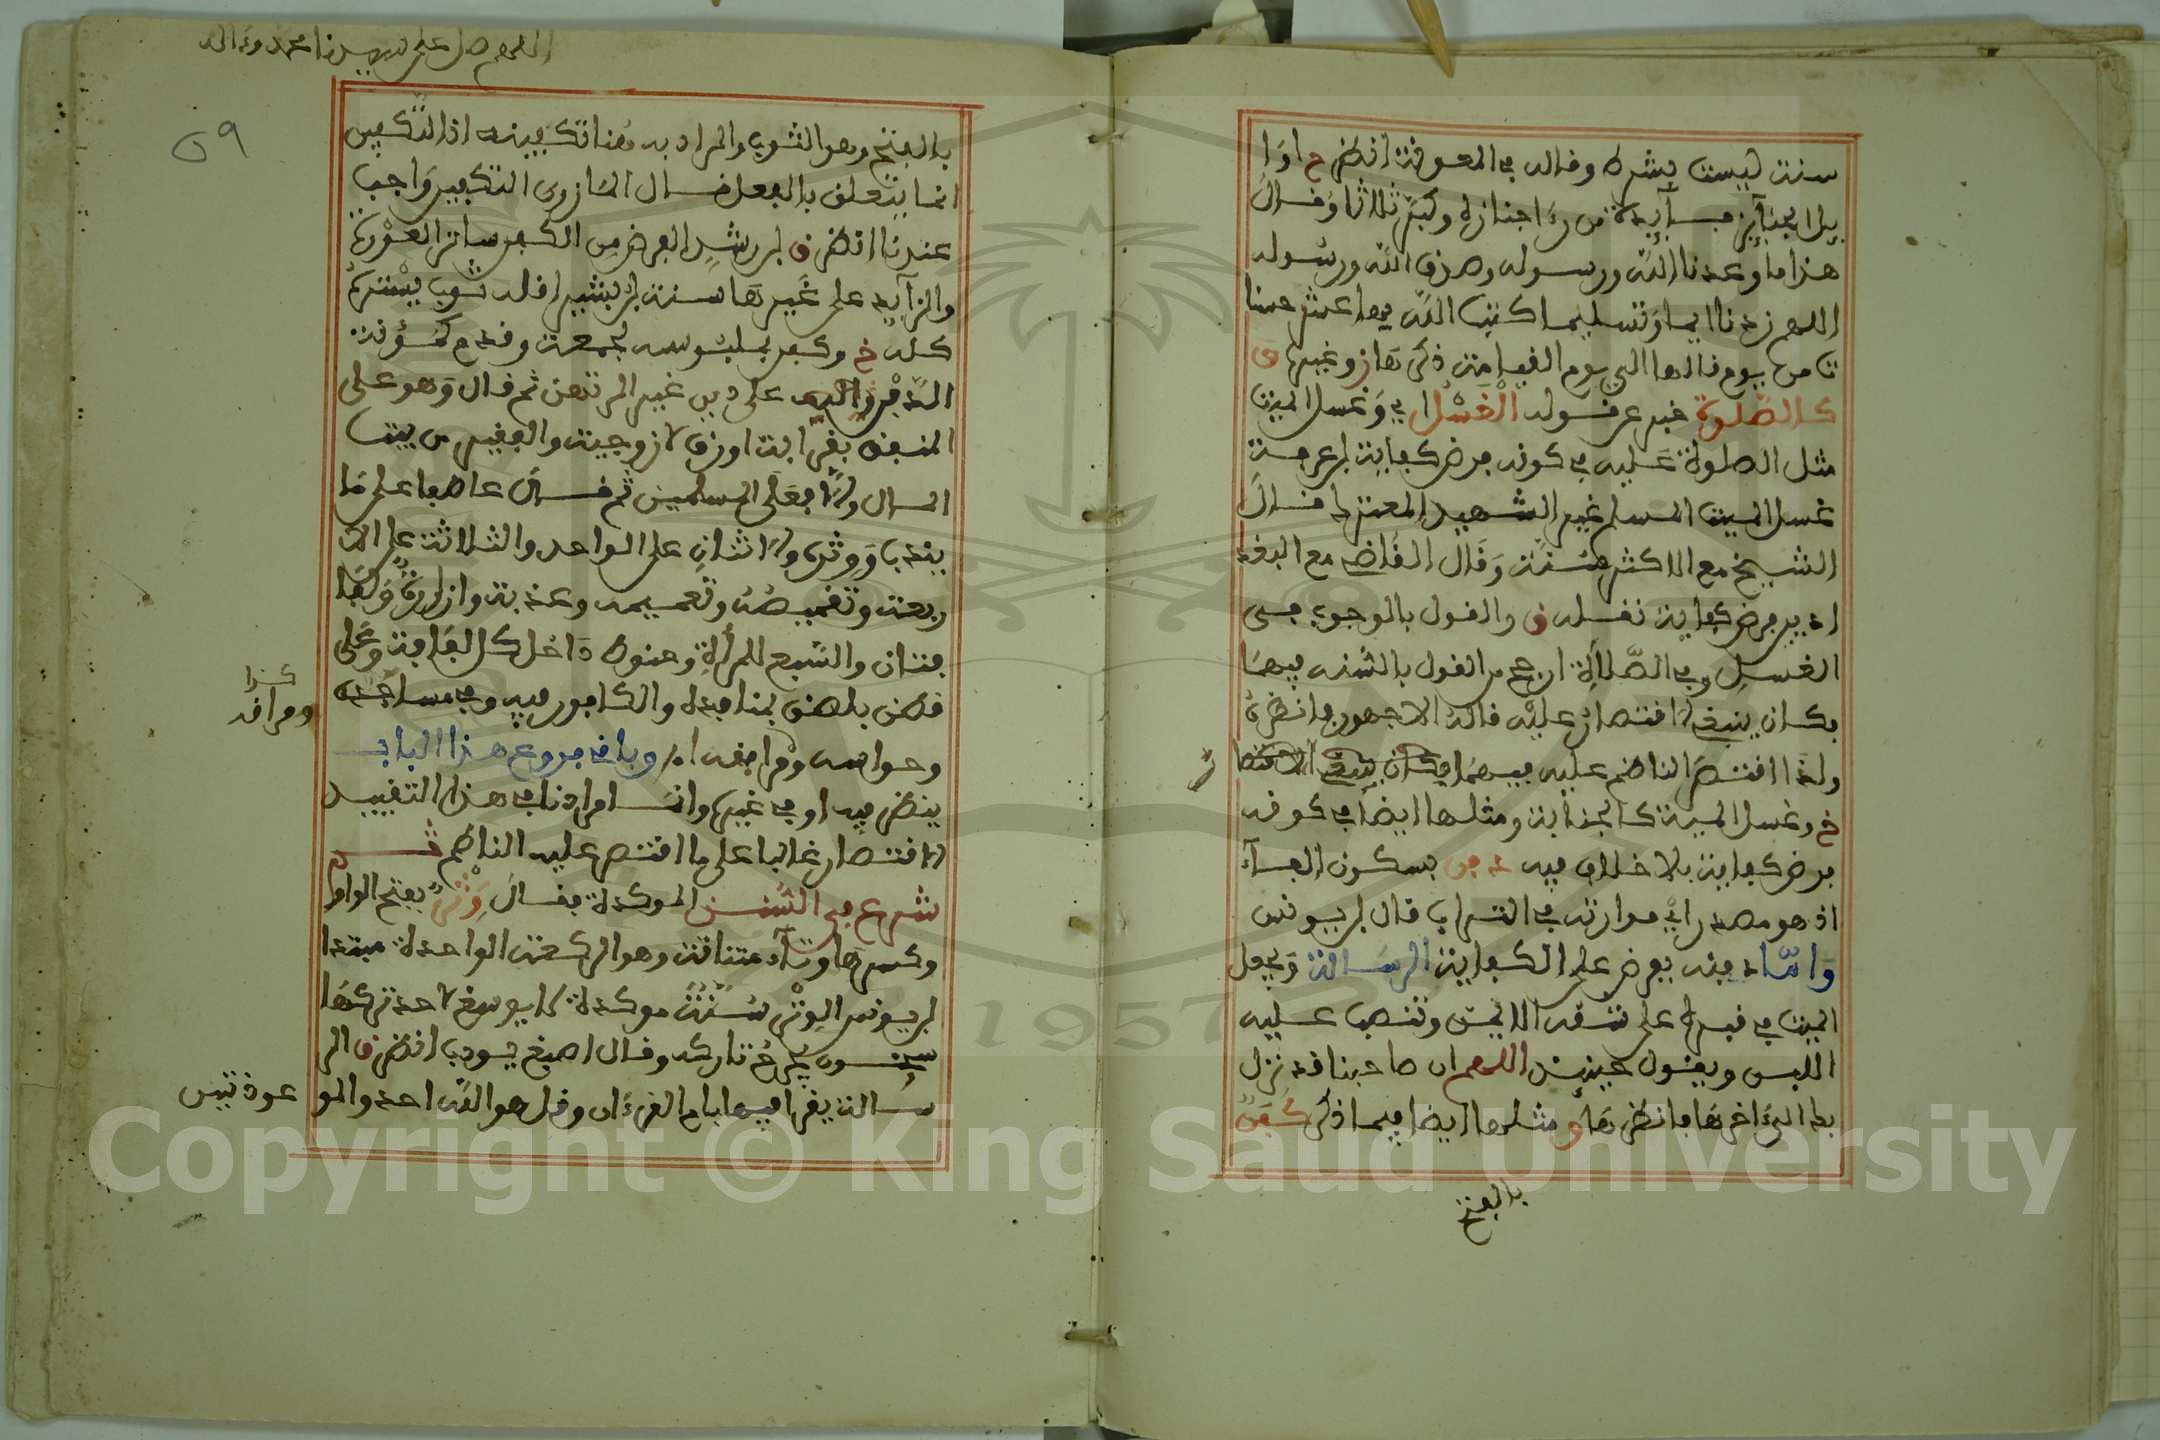 سنة ليست بشرط وقاله في المعونة انظر ح اوا
يل الجنايز فـايدة من رءا جنازة وكبر ثلاثا وقال
هذا ما وعدنا الله ورسوله وصدق الله ورسوله
اللهم زدنا ايما وتسليما كتب الله لها عشر حسنا
ت من يوم قالها الى يوم القيامة ذكرها ز وغيرها ى
كالصلوة خبر عن قوله الغسل اي وغسل الميت
مثل الصلوة عليه في كونه فرض كفاية ابن عرفة
غسل الميت المسلم غير الشهيد المعترك قال
الشيخ مع الاكثر سنة وقال القاضي مع البغد
اديين فرض كفاية نقله ق والقول بالوجوب في
الغسل وفي الصلاة ارجح من القول بالسنة فيهما
فكان ينبغي الاقتصار عليه قاله الاجهوري انظره
ولذا اقتصر الناظم عليه فيهما فكان ينبغي الاقتصا
خ وغسل الميت كالجنابة ومثلها ايضا في كونه
فرض كفاية بلا خلاف فيه دفن بسكون الفاء
اذ هو مصدر اي موارته في التراب قال ابن يونس
واما دفنه ففرض على الكفاية الرسالة ويجعل
الميت في قبره على شقه الايمن وتنصب عليه
اللبن ويقول حينئذ اللهم ان صاحبنا قد نزل
بك الى ءاخرها فانظرها ومثلها ايضا فيما ذكر كفن
بالفتح
اللهم صل على سيدنا محمد وءاله
59
بالفتح وهو الثوب والمراد به هنا تكفينه اذ التكفين
انما يتعلق بالفعل قال المازري التكفين واجب
عندنا انظر ق ابن رشد الفرض من الكفن ساتر العورة
والزايد على غيرها سنة ابن بشير اقله ثوب يستره
كله خ وكفن بملبوسه لجمعة وقدم كمؤنة
الدفن على دين غير المرتهن ثم قال وهو على
المنفق بقرابة او رق لا زوجية والفقير من بيت
المال والا فعلى المسلمين ثم قال عاطفا على ما
يندب ووتره والاثنان على الواحد والثلاثة على الار
ربعة وتقميصه وتعميمه وعذبة وازرة ولفا
فتان والسبع للمرأة وحنوط داخل كل لفافة وعلى
قطن يلصق بمنافذه والكافور فيه وفي مساجده
وحواسه ومراقه اهـ وباقي فروع هذا الباب
كذا
ومراقه
ينظر فيه او في غيره وانما مرادنا في هذا التقييد
الاقتصار غالبا على ما اقتصر عليه الناظم ثم
شرع في السنن الموكدة فقال وتر بفتح الواو
وكسرها وتاء مثناة وهو الركعة الواحدة مبتدا
ابن يونس الوتر سنة موكدة لا يوسع لاحد تركها
سحنون يجرح تاركه وقال اصبغ يودب انظر ق الر
سالة يقرا فيها بام القرءان وقل هو الله احد والمو
عوذتين